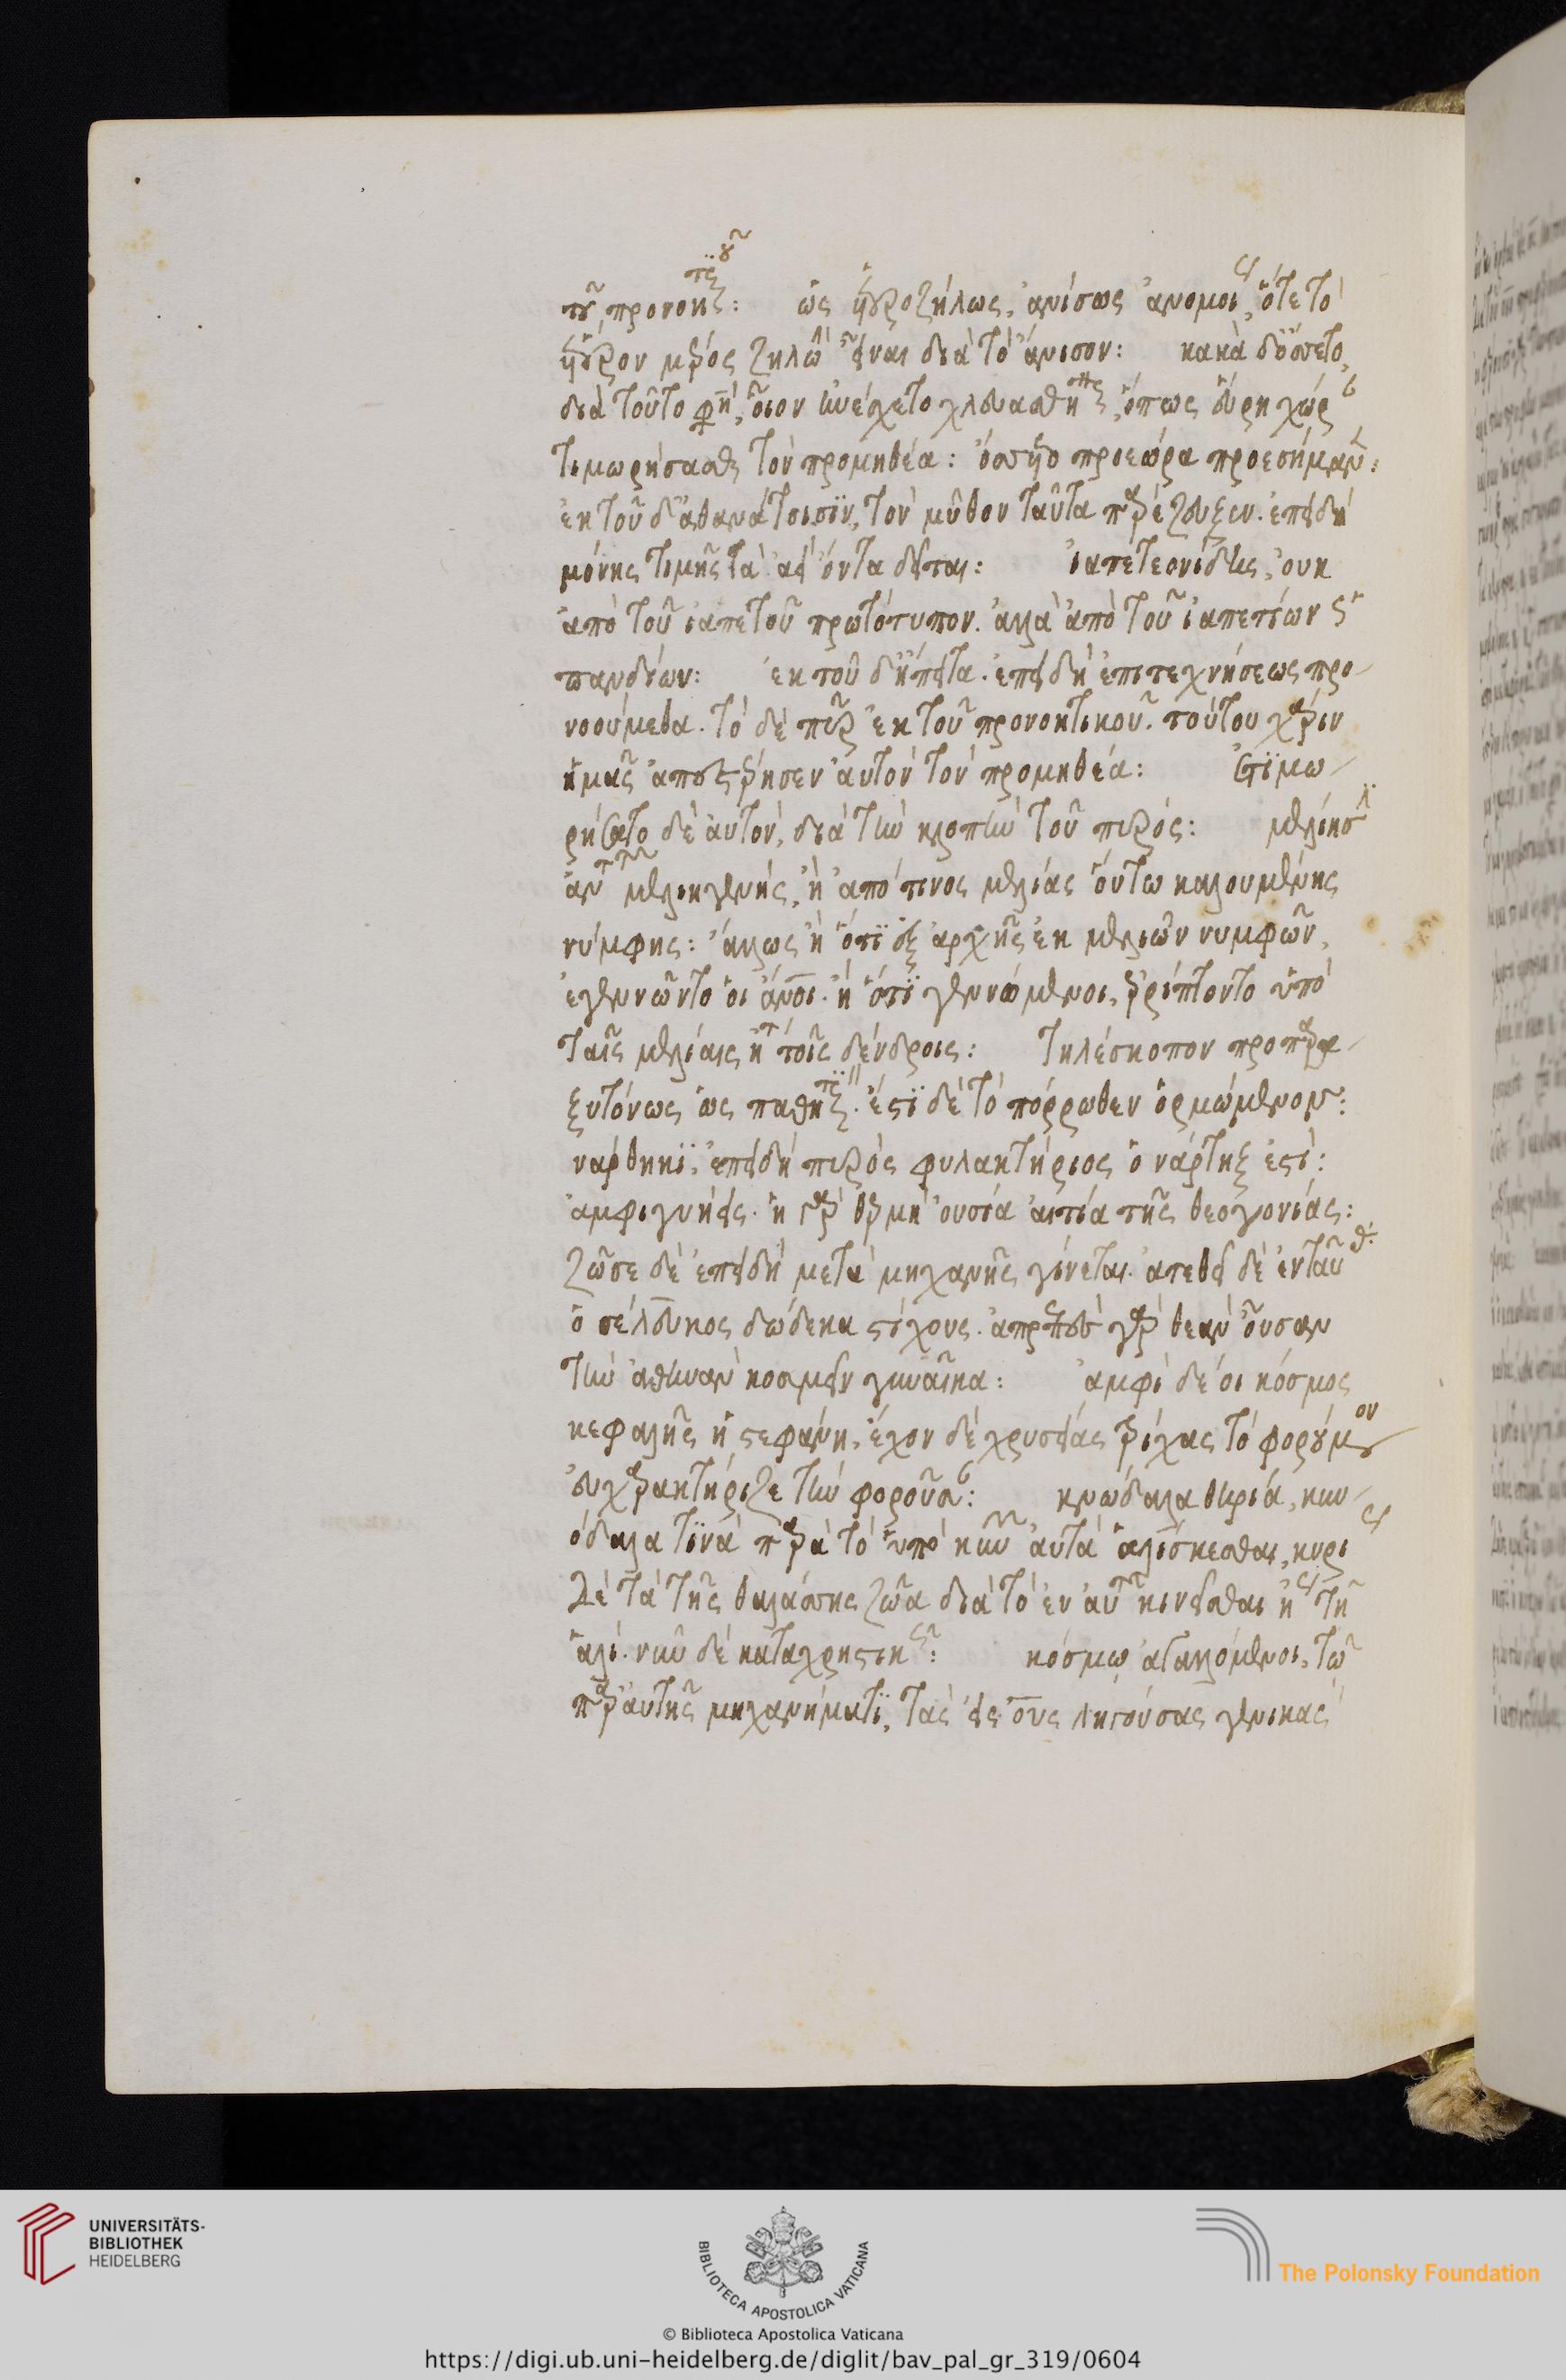 ὡς ἑτεροζήλως, ἀνίσως ὅτε τὸ
ἕτερον μέρος διὰ τὸ ἄνισον: κακὰ δ' ὄσσετο,
διὰ τοῦτο φησὶ, οἷον ἠνείχετο χλευασθῆναι, ὅπως εὕρη χώραν
τιμωρήσασθαι τὸν προμηθέα: ὄσσετο προεώρα προεσήμαινεν:
ἐκ τοῦ δ' ἀθανάτοισιν, τὸν μῦθον ταῦτα παρέζευξεν. ἐπειδὴ
μόνης τιμῆς τὰ ἀεὶ ὄντα δεῖται: ἰαπετιονίδης, οὐκ
ἀπὸ τοῦ ἰαπετοῦ πρωτότυπον. ἀλλὰ ἀπὸ τοῦ ἰαπετίων
ἐκ τοῦ δ' ἤπειτα. ἐπειδὴ ἐπιτεχνήσεως προ-
νοούμεθα. τὸ δὲ πῦρ ἐκ τοῦ προνοητικοῦ. τούτου χάριν
ἡμᾶς ἀποστερῆσεν αὐτὸν τὸν προμηθέα: ἐτιμω-
ρήσατο δὲ αὐτόν, διὰ τὴν κλοπὴν τοῦ πυρός:
μελιηγενής, ἢ ἀπό τινος μελίας οὕτω καλουμένης
νύμφης: ἄλλως ἢ ὅτι ἐξ ἀρχῆς ἐκ μελιῶν νυμφῶν,
ἐγεννῶντο οἱ ἄνοι. ἢ ὅτι γεννώμενοι, ἐρρίπτοντο ὑπὸ
ταῖς μελίαις ἤτοι τοῖς δένδροις: τηλέσκοπον προπαρο-
ξυτόνως ὡς ἔστι δὲ τὸ πόρρωθεν ὁρμώμενον:
νάρθηκι, ἐπειδὴ πυρὸς φυλακτήριος ὁ νάρτηξ ἐστί:
ἀμφιγυήεις. ἡ γὰρ θερμὴ οὐσία αἰτία τῆς θεογονίας:
ζῶσε δὲ ἐπειδὴ μετὰ μηχανῆς γίνεται. ἀθετεῖ δὲ ἐνταῦθ.
ὁ σέλευκος δώδεκα στίχους. ἀπρεπὲς γὰρ θεὰν οὖσαν
τὴν ἀθηνᾶν κοσμεῖν γυναῖκα: ἀμφὶ δέ οἱ κόσμος
κεφαλῆς ἡ στεφάνη, ἔχον δὲ χρυσέας τρίχας τὸ φορούμενον
εὐχαρακτήριζε τὴν φοροῦσαν: κνώδαλα θηρία, κυν-
όδαλα τινὰ παρὰ τὸ ὑπὸ κυνῶν αὐτὰ ἁλίσκεσθαι, κυρίως
δὲ τὰ τῆς θαλάσσης ζῶα διὰ τὸ ἐν αὐτῇ κινεῖσθαι ἤγουν τῆ
ἁλί. νῦν δὲ καταχρηστικῶς: κόσμω ἀγαλλόμενοι, τῶ
παρ' αὐτῆς μηχανήματι, τὰς εἰς ους ληγούσας γενικὰς
UNIVERSITÄTS-
BIBLIOTHEK
HEIDELBERG
BIBLIOTECA APOSTOLICA VATICANA
The Polonsky Foundation
© Biblioteca Apostolica Vaticana
https://digi.ub.uni-heidelberg.de/diglit/bav_pal_gr_319/0604